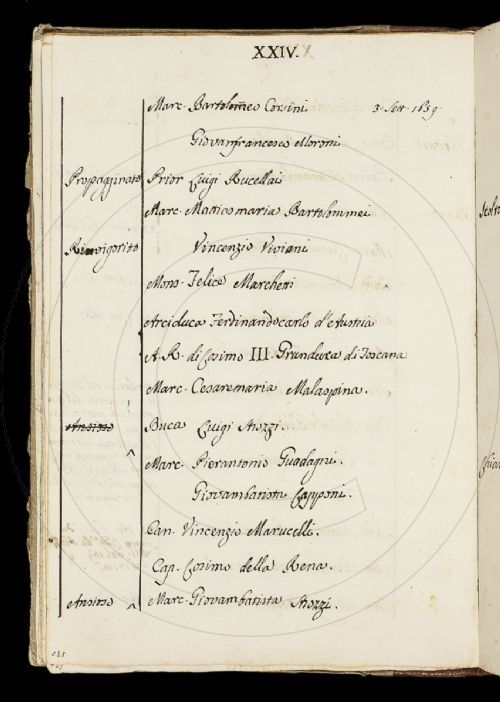 XXIV.
Marc. Bartolomeo Corsini 3. Sett. 1659
Giovanfrancesco Moroni
Propagginato Prior Luigi Bucellai
Marc. Matteomaria Bartolommei
Rinvigorito Vincenzio Viviani
Mons. Felice Marchetti
Arciduca Ferdinandocarlo d'Austria
A. R. di Cosimo III. Granduca di Toscana
Marc. Cesaremaria Malaspina.
Ansioso Duca Luigi Strozzi.
Marc. Pierantonio Guadagni.
Giovambatista Capponi.
Can. Vincenzio Marucelli.
Cap. Cosimo della Rena.
Ansioso Marc. Giovambatista Strozzi.